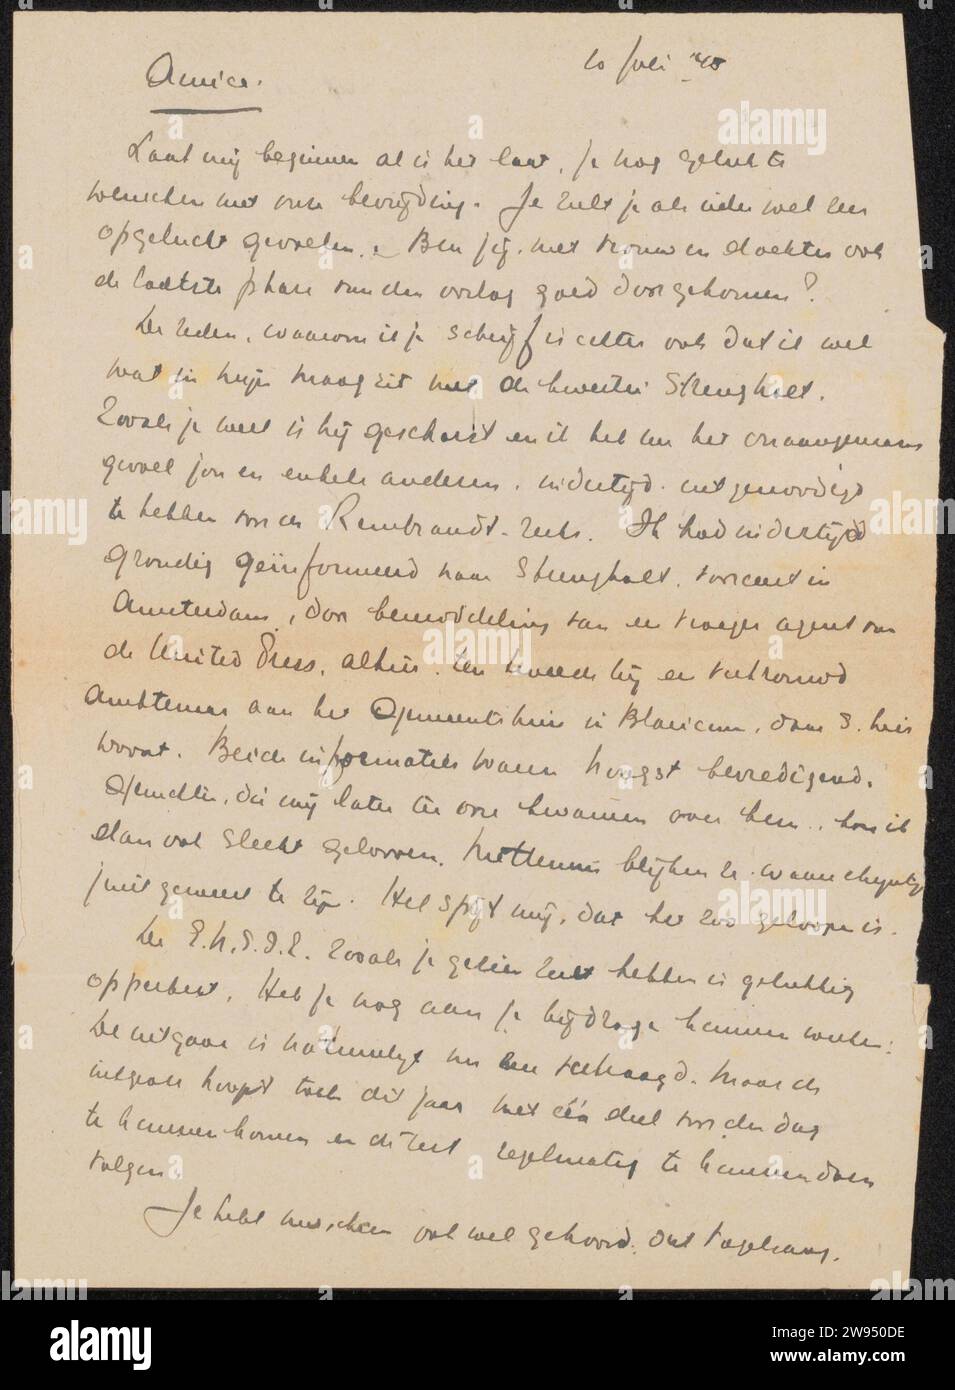 10 Juli '45
Amice.
Laat mij beginnen al is het laat, je nog geluk te
wenschen met onze bevrijding. Je zult je als ieder wel zeer
opgelucht gevoelen. Ben jij, met vrouw en dochter ook
de laatste phase van den oorlog goed doorgekomen?
De reden, waarom ik je schrijf is echter ook dat ik wel
wat in mijn maag zit met de kwestie Strengholt.
Zooals je weet is hij gearresteerd en ik heb nu het onaangename
gevoel jou en enkele anderen, indertijd uitgenoodigd
te hebben voor de Rembrandt-reeks. Ik had indertijd
grondig geïnformeerd naar Strengholt, vooreerst in
Amsterdam, door bemiddeling van en vroeger agent van
de United Press, aldus, ten tweede bij en
Ambtenaar aan het Gemeentehuis in Blaricum, daar S. hier
woont. Beide informaties waren hoogst bevredigend.
Geruchten, die mij later ter oore kwamen over hem, kon ik
dan ook slecht gelooven. Niettemin blijken ze waarschijnlijk
juist geweest te zijn. Het spijt mij, dat het zoo geloopen is.
De E.N.S.I.E. zooals je gezien zult hebben is gelukkig
opperbest. Heb je nog aan je bijdrage kunnen werken?
De uitgave is natuurlijk nu zeer vertraagd. Maar de
uitgever hoopt toch dit jaar met één deel voor den dag
te kunnen komen en de rest regelmatig te kunnen doen
volgen.
Je hebt misschien ook wel gehoord, dat
alamy
Image ID: 2W950DE
www.alamy.com